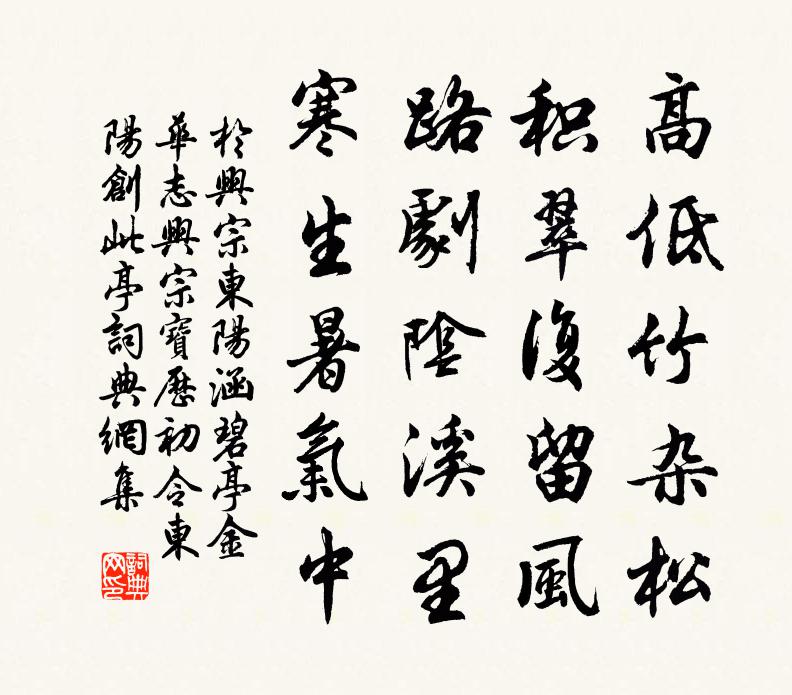 高低竹杂松
积翠復留風
路劇陰溪里
寒生暑氣中
於興宗東陽涵碧亭金
華志興宗寶歷初令東
陽創此亭詞典網集
詞典网印